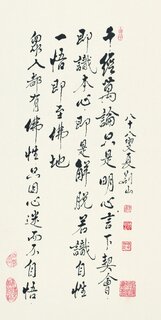 千經萬論只是明心言下契會
即識本心即是解脫若識自性
一悟即至佛地
眾人都有佛性只因心迷而不自悟
八十八叟夏荆山